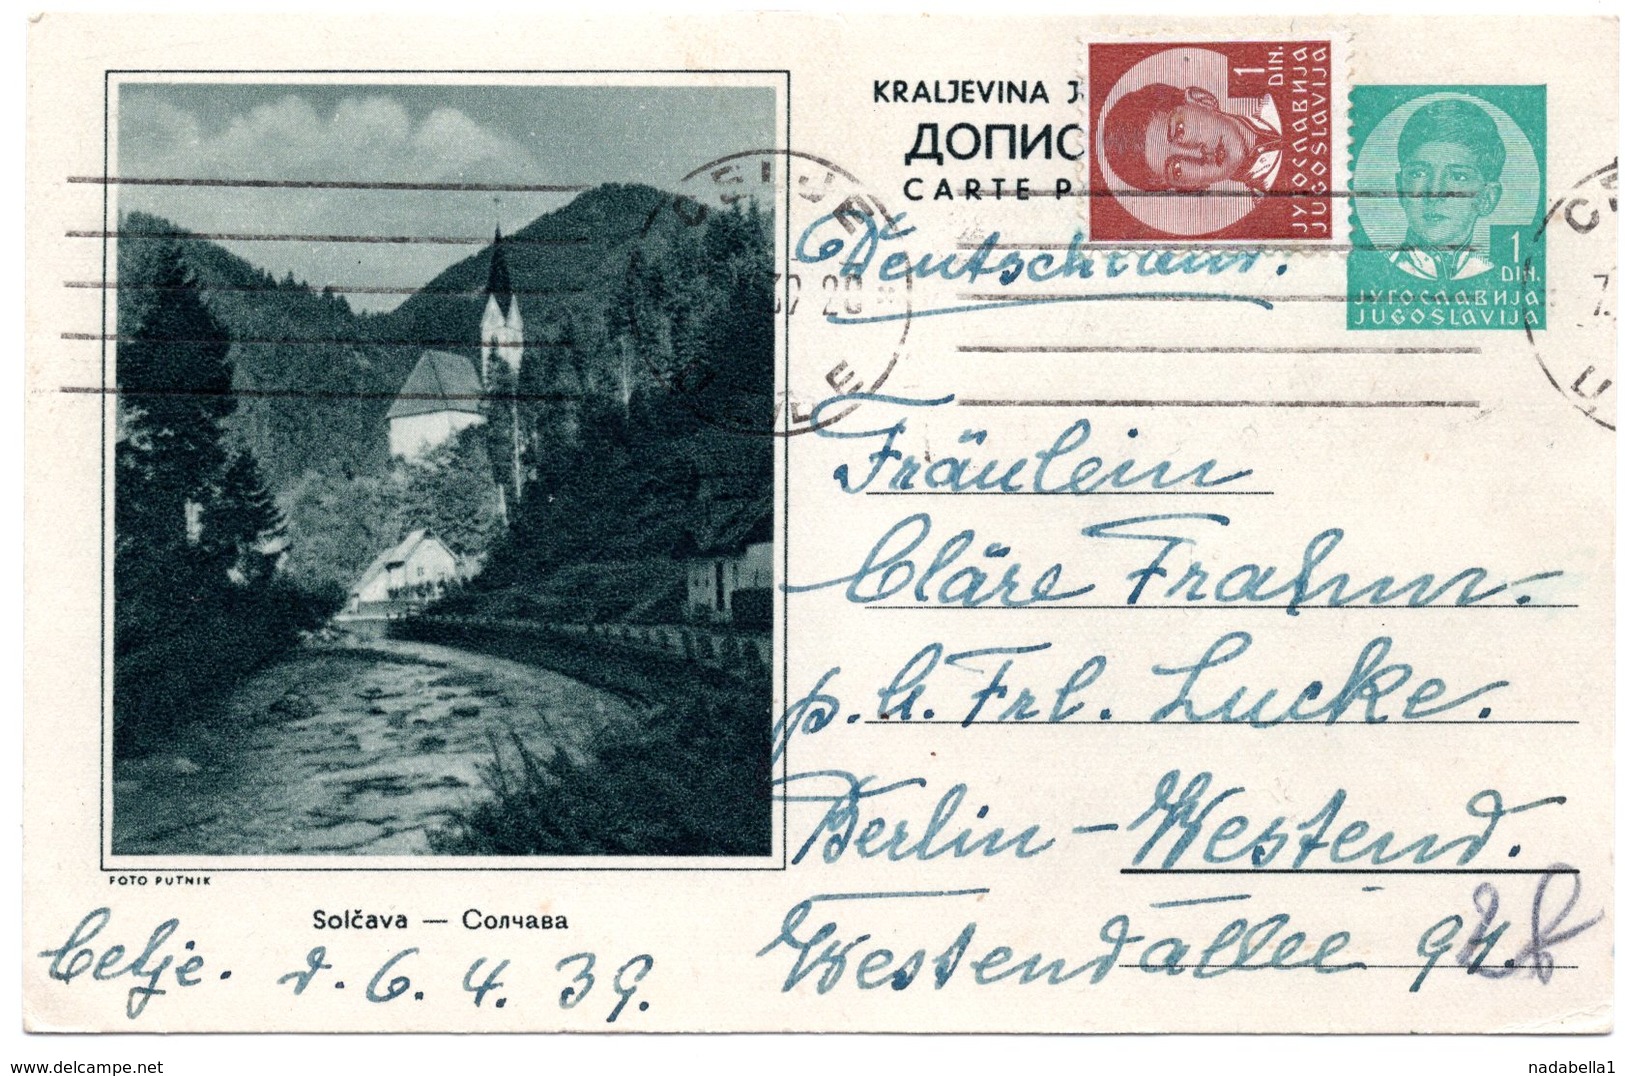 KRALJEVINA J
ДОПИС
CARTE P
1
DIN.
ЈУГОСЛАВИЈА
JUGOSLAVIJA
1
DIN.
ЈУГОСЛАВИЈА
JUGOSLAVIJA
CELJE
Deutschland.
Fräulein
Cläre Frahm.
p. A. Frl. Lucke.
Berlin – Westend.
Westendallee 94.
FOTO PUTNIK
Solčava — Солчава
Celje. d. 6. 4. 39.
www.delcampe.net
nadabella1